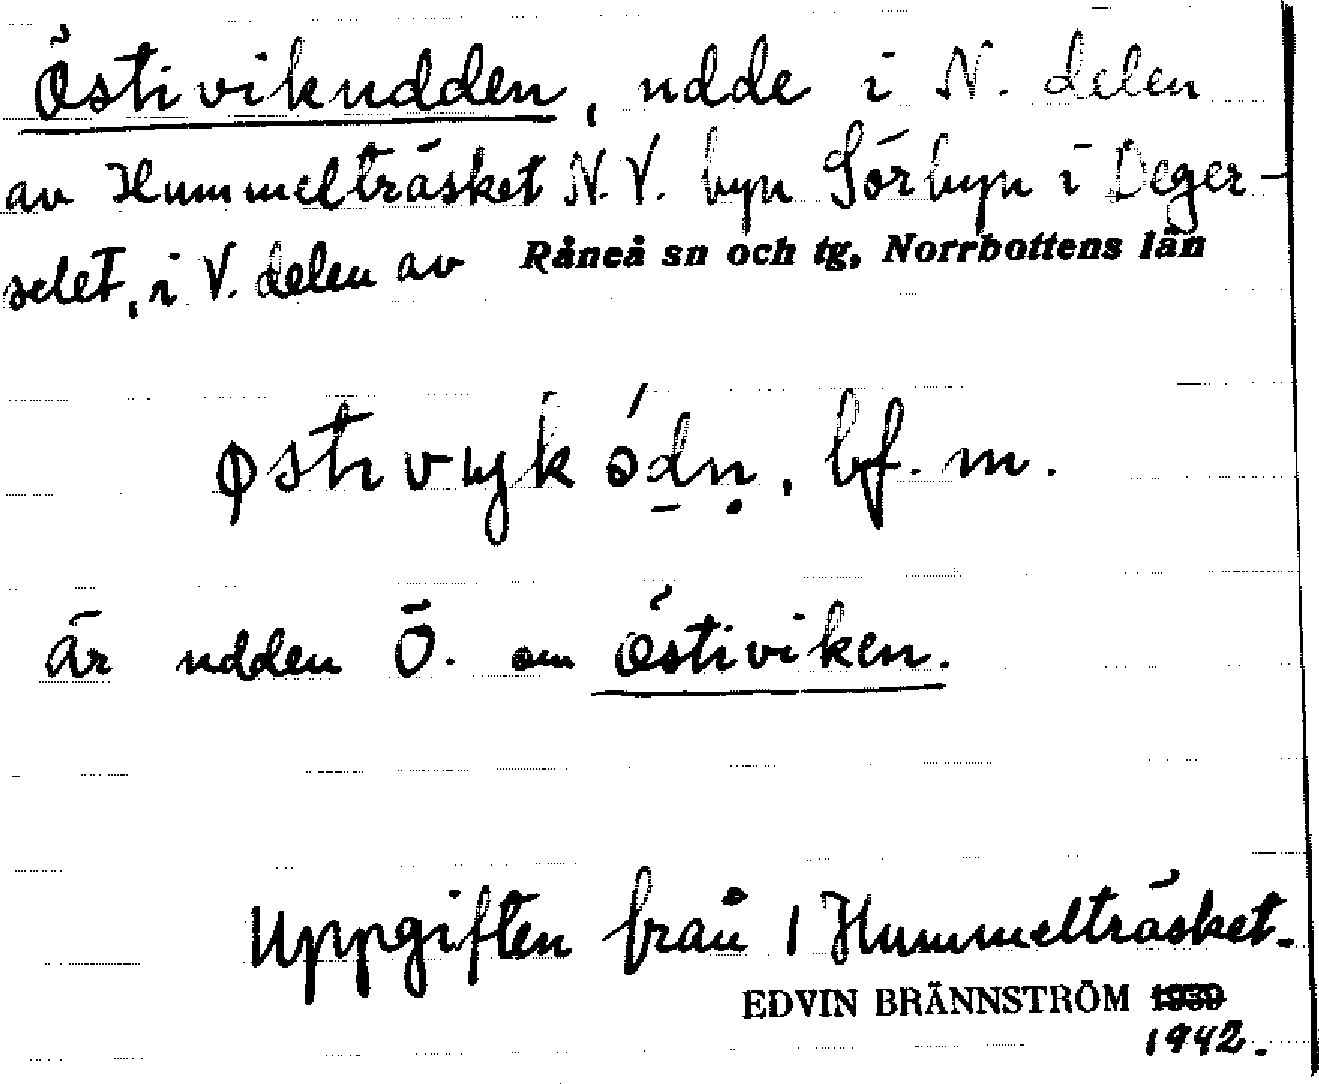 Östivikudden, udde i N. delen
av Hummelträsket N.V. byn Sörbyn i Deger-
selet, i V. delen av Råneå sn och tg, Norrbottens län
østivyk ódn, bf. m.
Är udden Ö. om Östiviken.
Uppgiften från 1 Hummelträsket.
EDVIN BRÄNNSTRÖM 1939
1942.